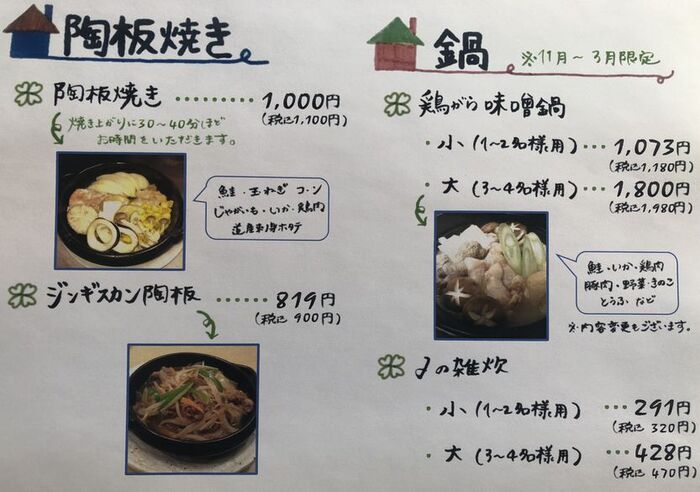 陶板焼き
陶板焼き ‥‥‥‥ 1,000円
(税込1,100円)
焼き上がりに30〜40分ほど
お時間をいただきます。
鮭・玉ねぎ コーン
じゃがいも・いか・鶏肉
道産赤海ホタテ
ジンギスカン陶板 ‥‥‥ 819円
(税込 900円)
鍋 ※11月〜3月限定
鶏がら味噌鍋
・小(1〜2名様用) ‥‥ 1,073円
(税込1,180円)
・大(3〜4名様用) ‥‥ 1,800円
(税込1,980円)
鮭・いか・鶏肉
豚肉・野菜・きのこ
とうふ など
※内容変更もございます。
の雑炊
・小(1〜2名様用) ‥‥ 291円
(税込 320円)
・大(3〜4名様用) ‥‥ 428円
(税込 470円)